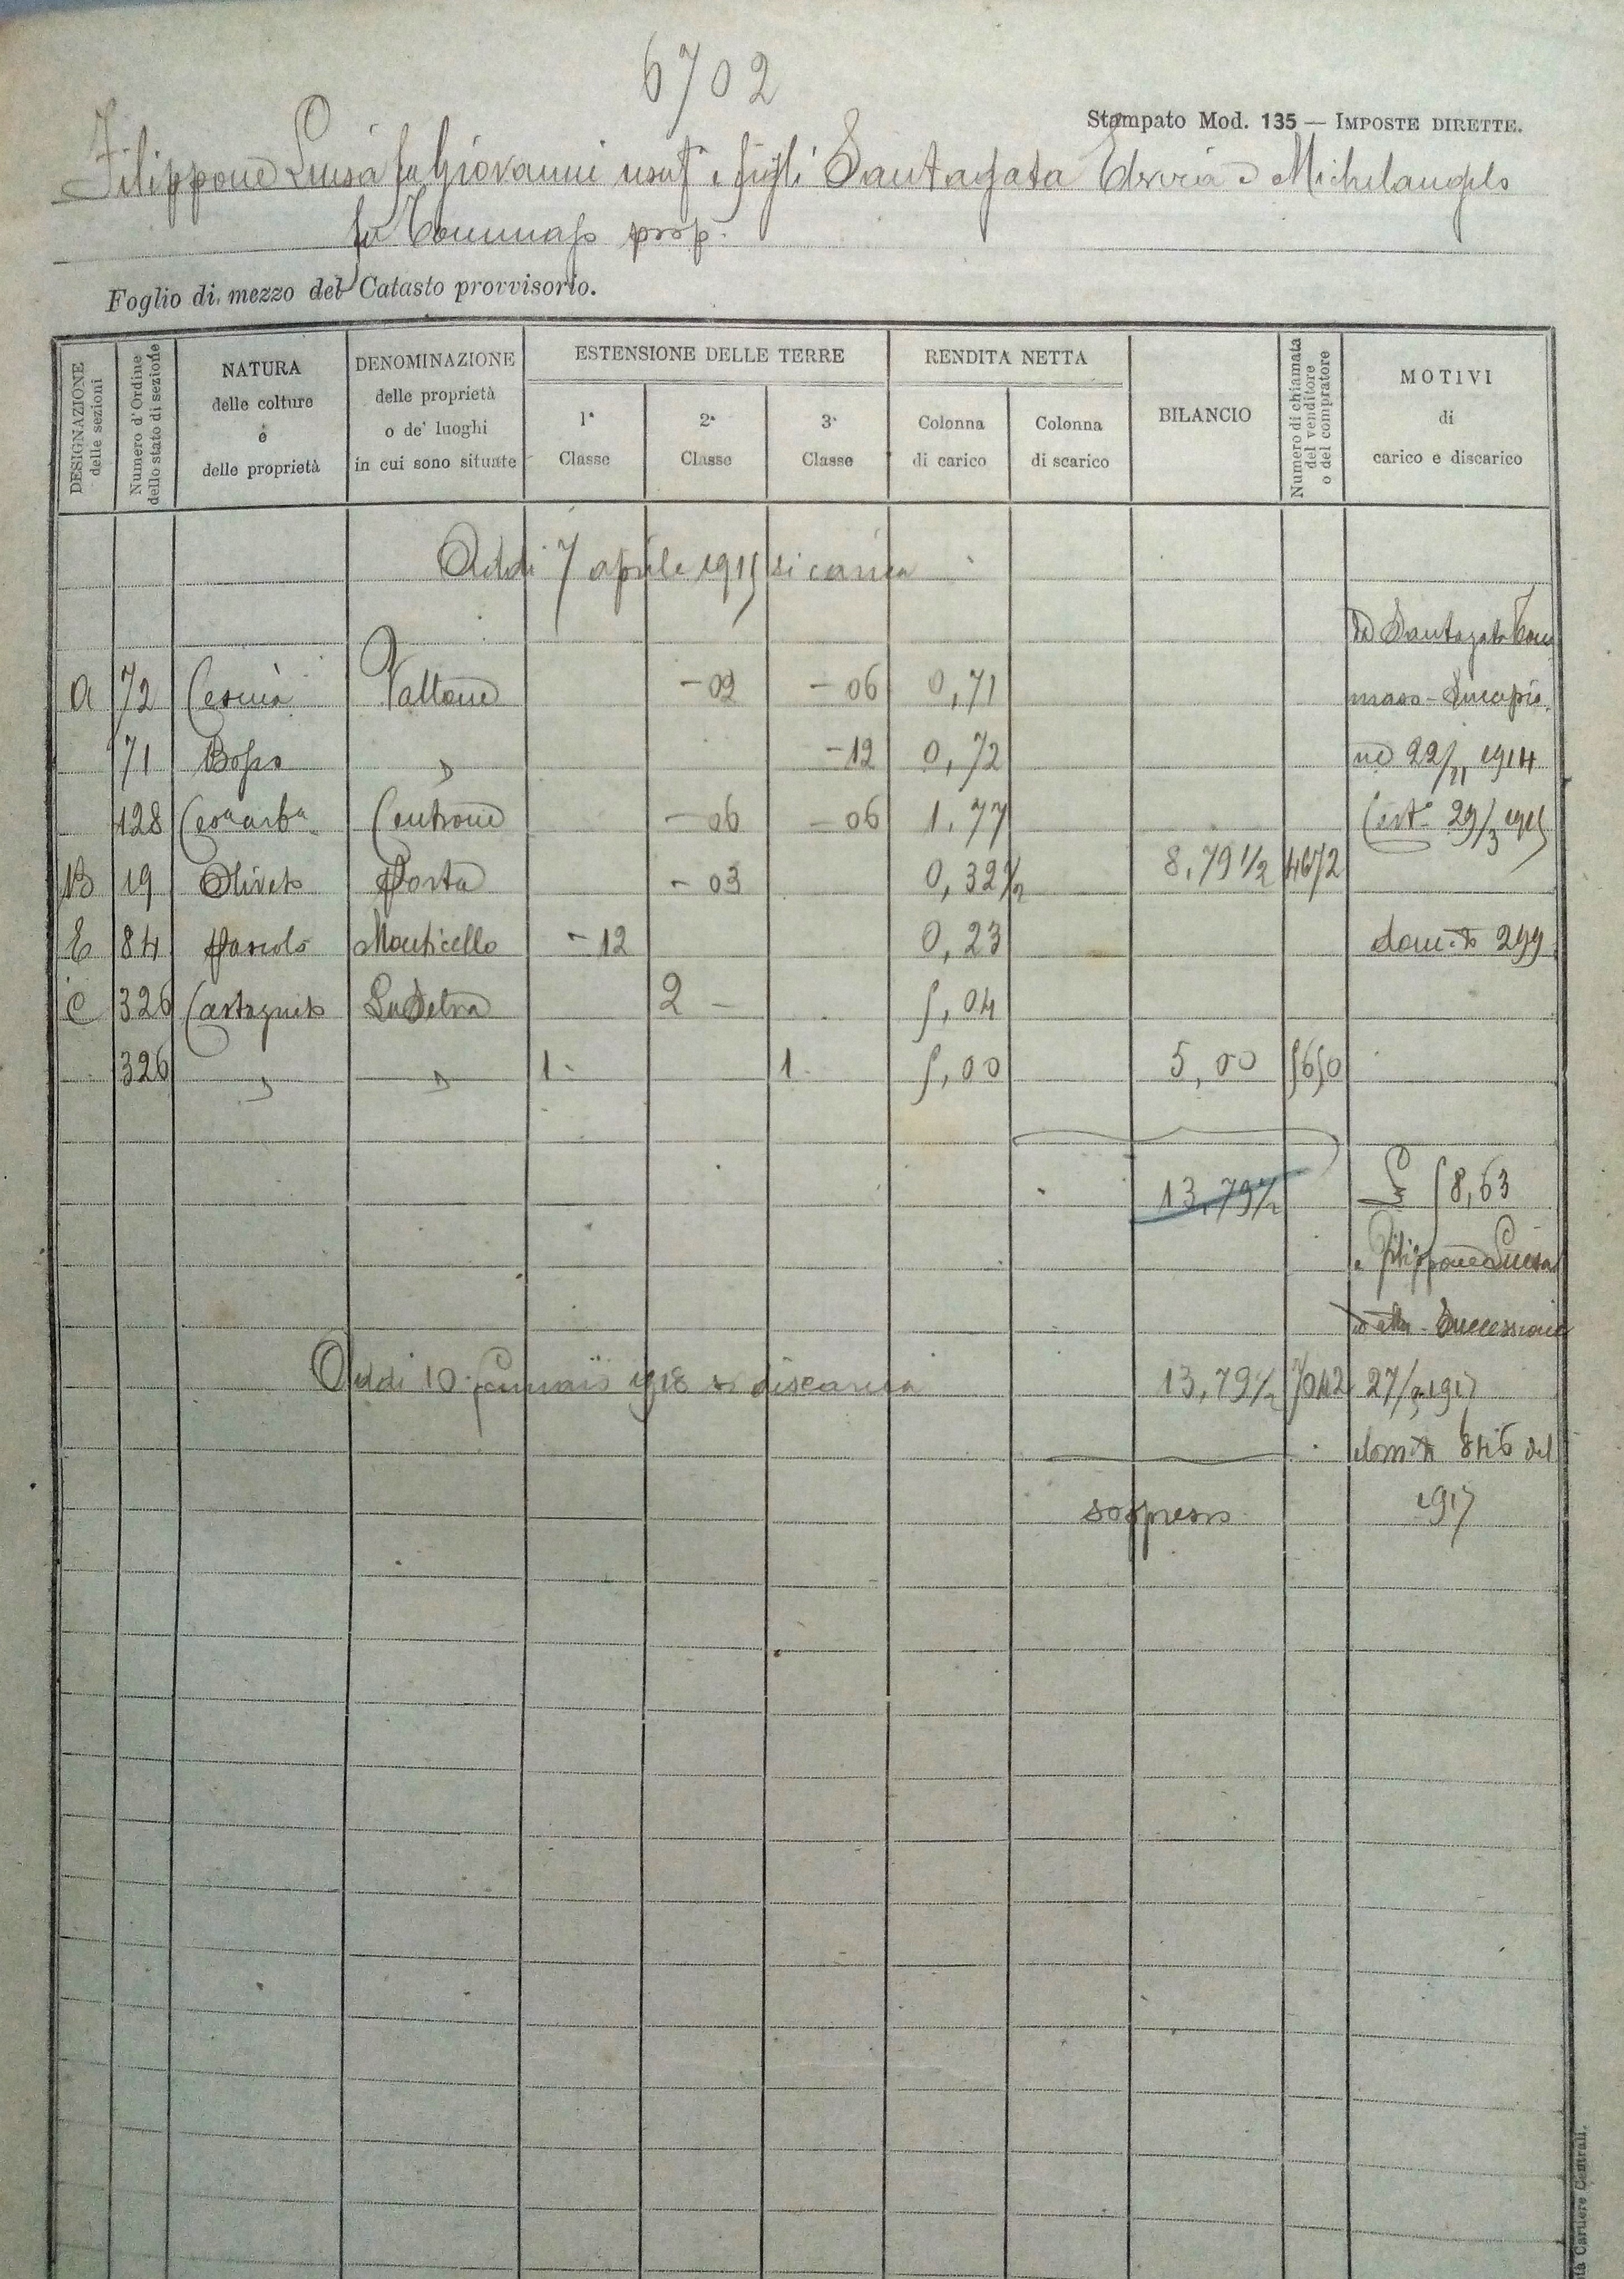 6702
Stampato Mod. 135 — IMPOSTE DIRETTE.
Filippone Luisa fu Giovanni usuf. e figli Santagata Elvira e Michelangelo
fu Tommaso prop.
Foglio di mezzo del Catasto provvisorio.
DESIGNAZIONE delle sezioni
Numero d'Ordine dello stato di sezione
NATURA delle colture e delle proprietà
DENOMINAZIONE delle proprietà o de' luoghi in cui sono situate
ESTENSIONE DELLE TERRE
1ª Classe
2ª Classe
3ª Classe
RENDITA NETTA
Colonna di carico
Colonna di scarico
BILANCIO
Numero di chiamata del venditore o del compratore
MOTIVI di carico e discarico
Addi 7 aprile 1915 si carica
Da Santagata Tom
A 72 Vallone -02 -06 0,71 maso -
71 Bosco " -12 0,72 22/11 1914
128 Centrone -06 -06 1.77 Cert. 29/3 1915
B 19 Oliveto Porta -03 0,32½ 8,79½ 4672
E 84 Pascolo Monticello -12 0,23 dom. 299
C 326 Castagneto La Selva 2 - 5,04
326 " " 1. 1. 5,00 5,00 5650
13,79½ 58,63
a Filippone Luisa
Successione
Addi 10 Gennaio 1918 si discarica 13,79½ 7042 27/ 1917
846 del
soppresso 1917